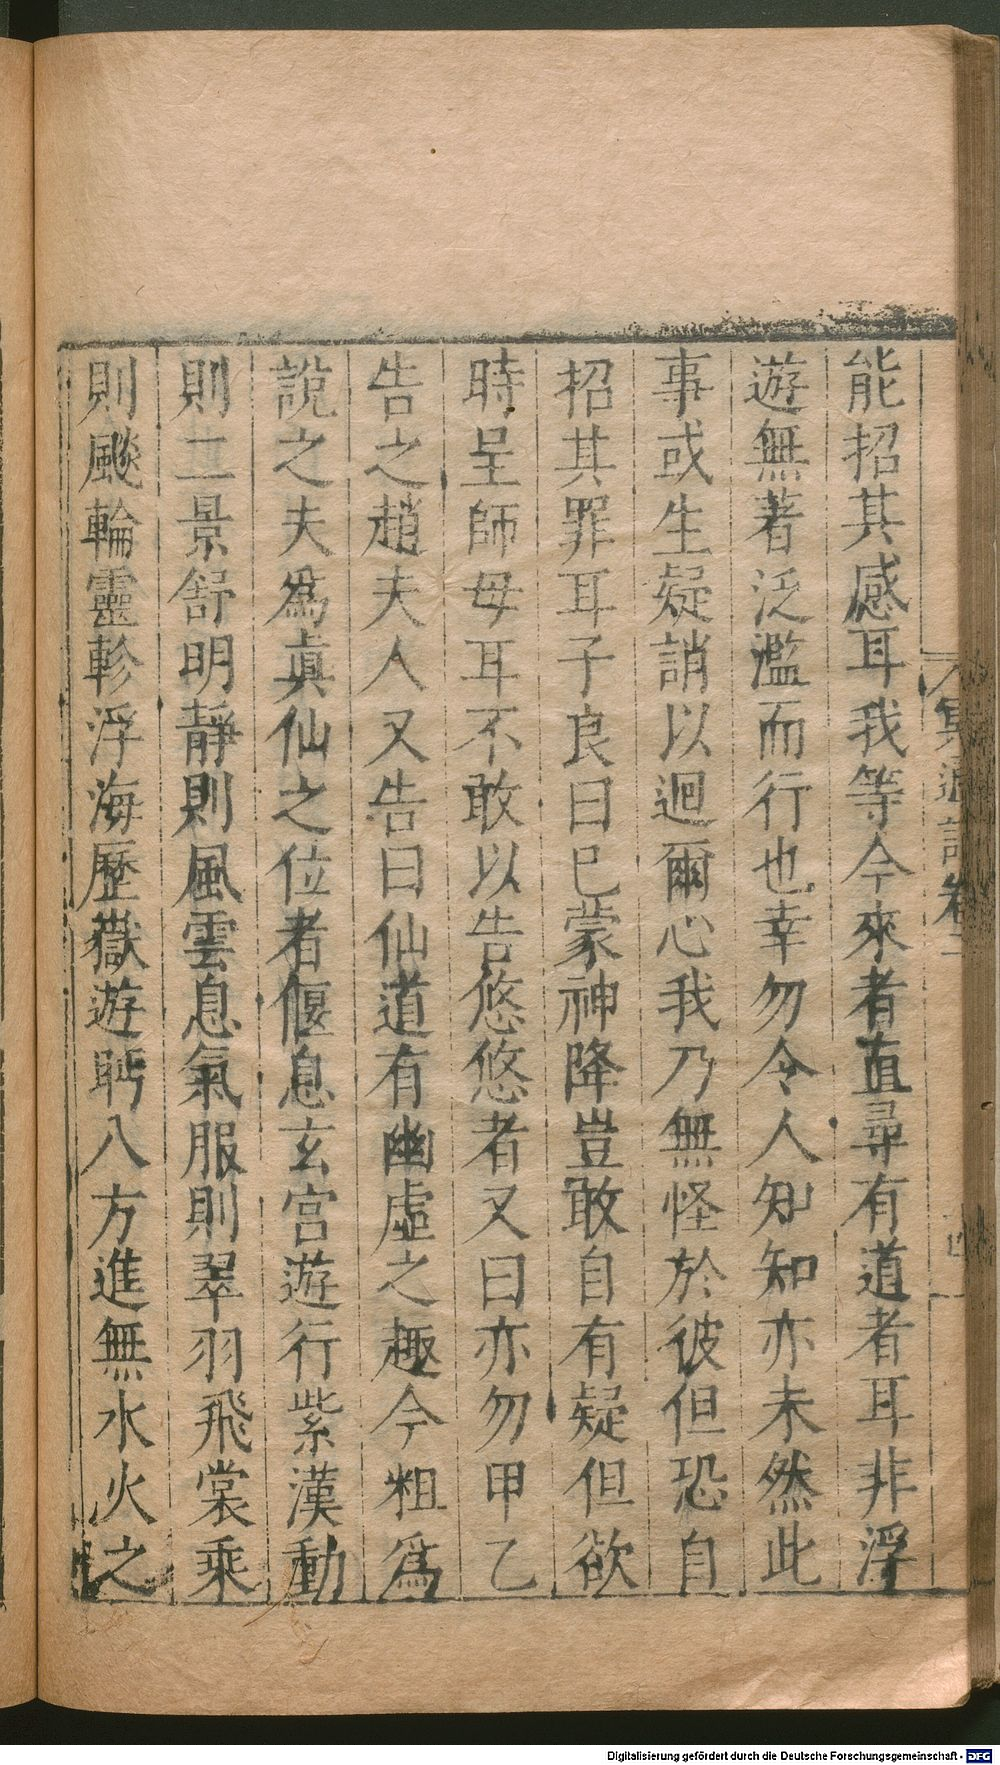 冥通記卷
能招其感耳我等今來者直尋有道者耳非浮
遊無著泛濫而行也幸勿令人知知亦未然此
事或生疑誚以迴爾心我乃無怪於彼但恐自
招其罪耳子良曰巳蒙神降豈敢自有疑但欲
時呈師母耳不敢以告悠悠者又曰亦勿甲乙
告之趙夫人又告曰仙道有幽虛之趣今粗為
說之夫為真仙之位者偃息玄宮遊行紫漢動
則二景舒明靜則風雲息氣服則翠羽飛裳乘
則飈輪靈軫浮海歷嶽遊眄八方進無水火之
Digitalisierung gefördert durch die Deutsche Forschungsgemeinschaft - DFG